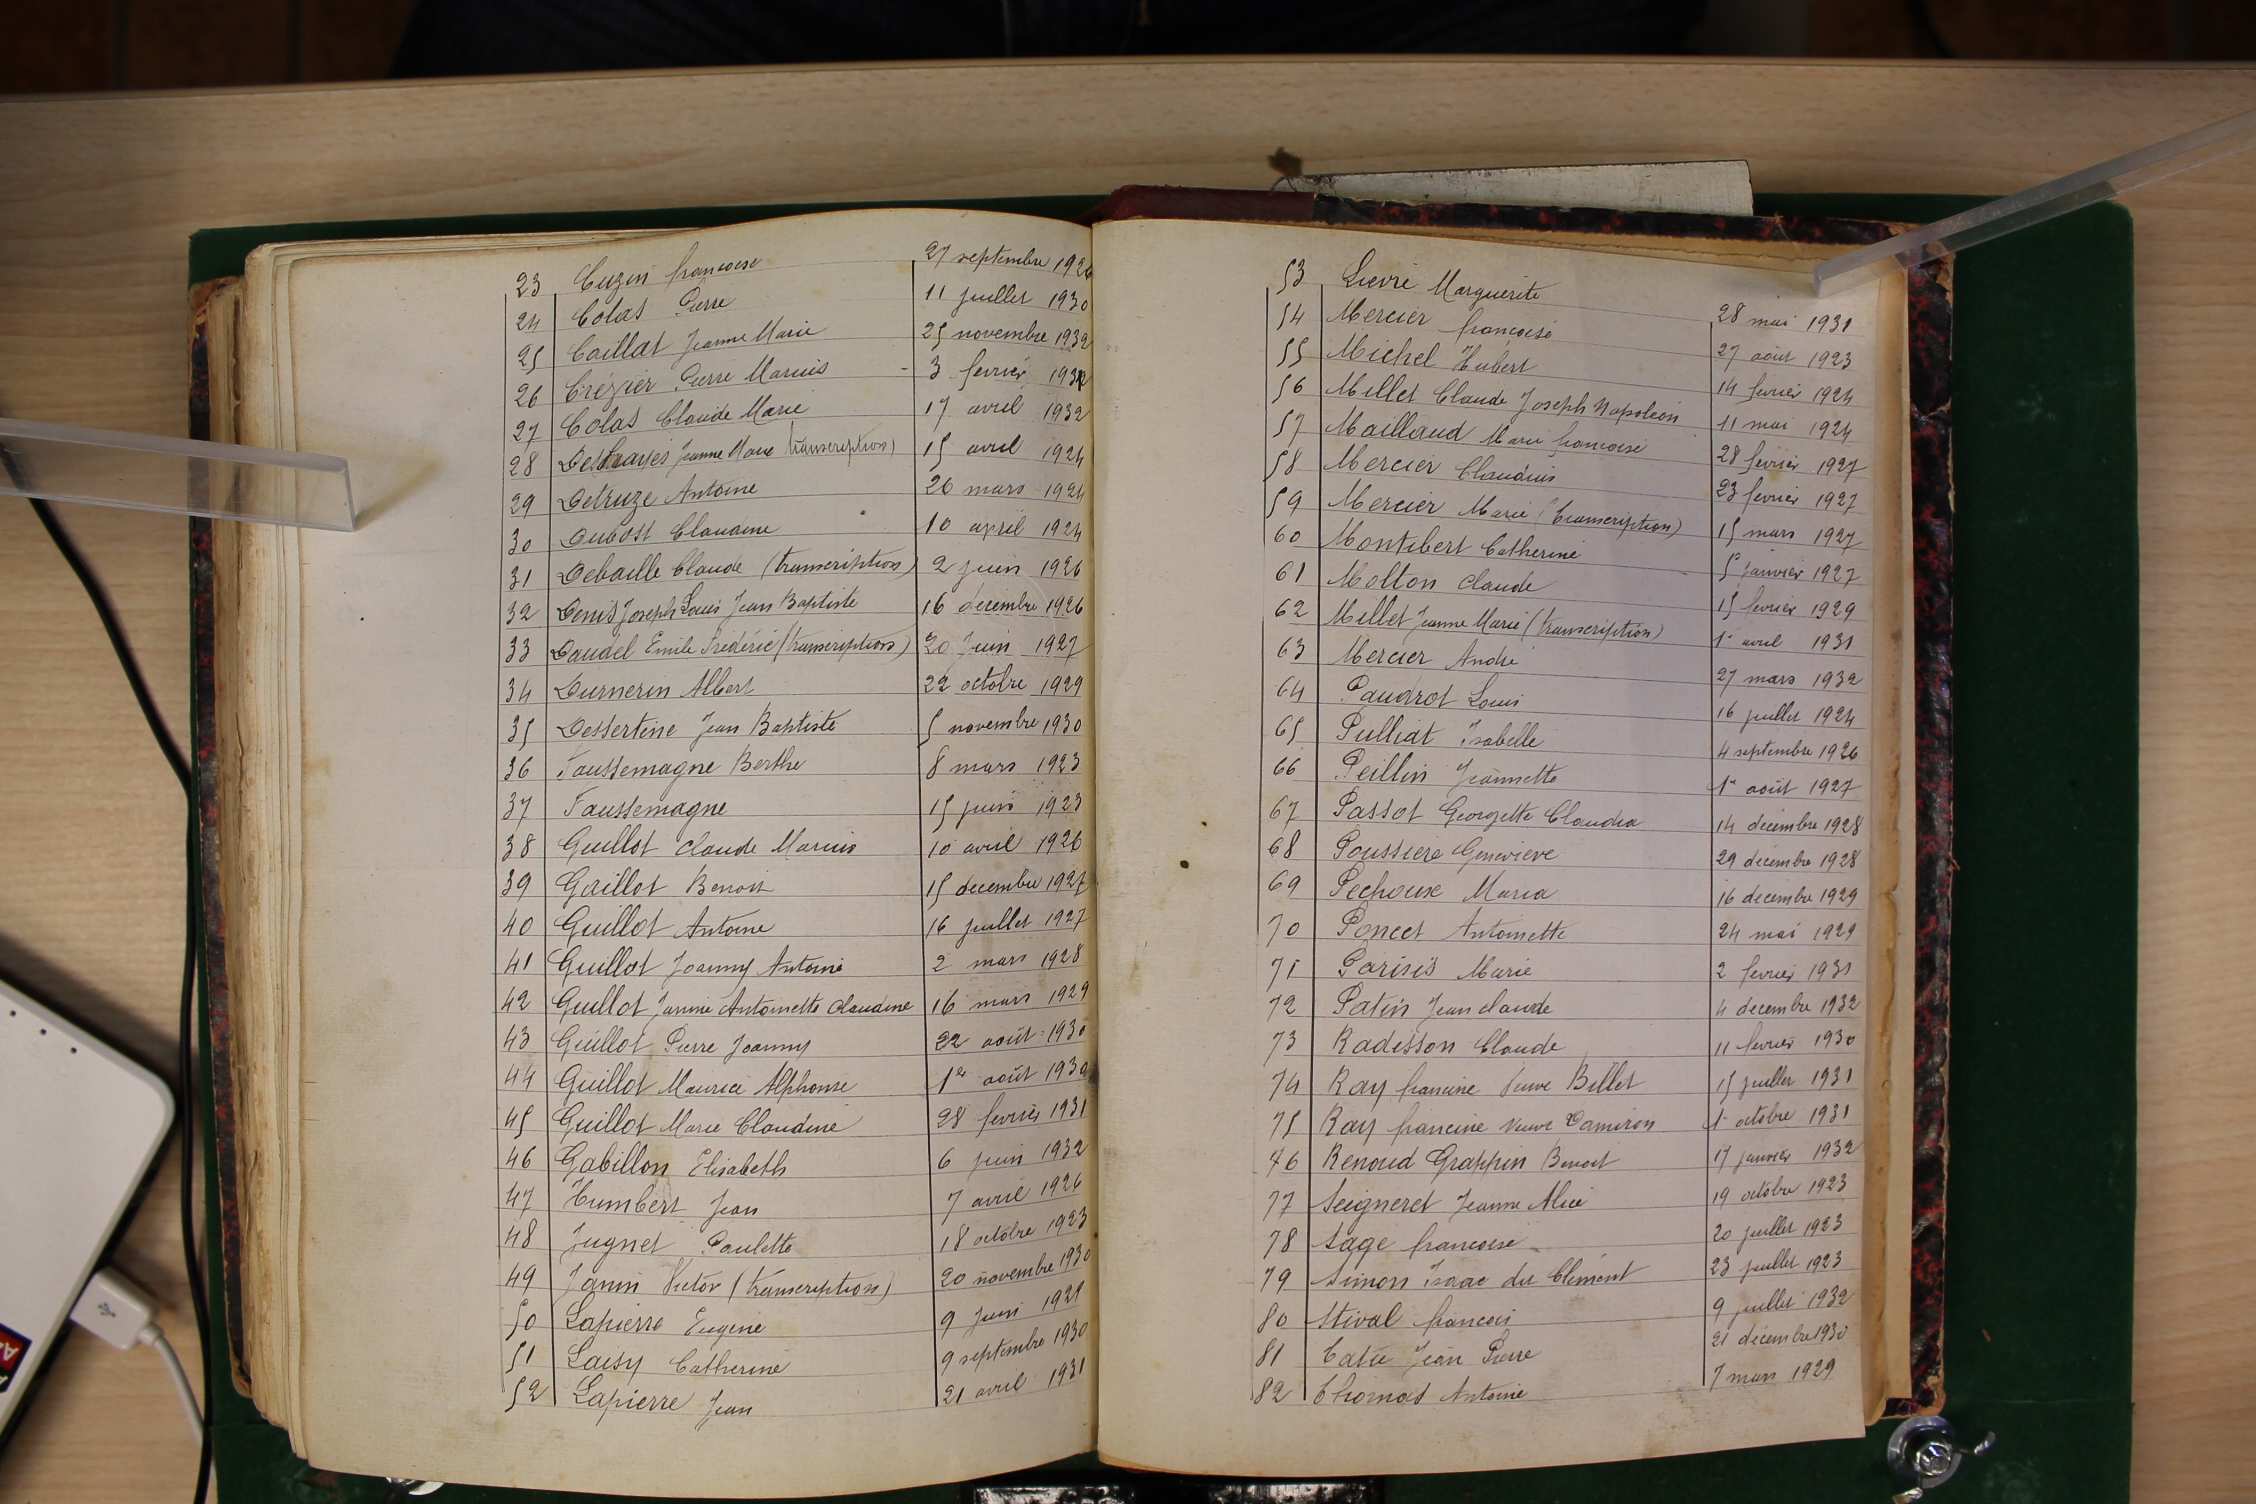 23 Cuzin françoise 27 septembre 1926
24 Colas Pierre 11 juillet 1930
25 Caillat Jeanne Marie 25 novembre 1932
26 Crézier Pierre Marius 3 fevrier 1932
27 Colas Claude Marie 17 avril 1932
28 Jeanne Marie (transcription) 15 avril 1924
29 Detruze Antoine 26 mars 1924
30 Dubost Claudine 10 april 1924
31 Debaille Claude (transcription) 2 juin 1926
32 Denis Joseph Louis Jean Baptiste 16 décembre 1926
33 Daudel Emile Frédéric (transcription) 20 Juin 1927
34 Durnerin Albert 22 octobre 1929
35 Dessertine Jean Baptiste 5 novembre 1930
36 Faussemagne Berthe 8 mars 1923
37 Faussemagne 15 juin 1923
38 Guillot claude Marius 10 avril 1926
39 Gaillot Benoit 15 decembre 1927
40 Guillot Antoine 16 juillet 1927
41 Guillot Joanny Antoine 2 mars 1928
42 Guillot Jeanne Antoinette claudine 16 mars 1929
43 Guillot Pierre Joanny 22 août 1930
44 Guillot Maurice Alphonse 1er août 1930
45 Guillot Marie Claudine 28 fevrier 1931
46 Gabillon Elisabeth 6 juin 1932
47 Humbert Jean 7 avril 1926
48 Jugnet Paulette 18 octobre 1923
49 Janin Victor (transcription) 20 novembre 1930
50 Lapierre Eugène 9 Juin 1921
51 Laisy Catherine 9 septembre 1930
52 Lapierre Jean 21 avril 1931
53 Lievre Marguerite 28 mai 1931
54 Mercier françoise 27 août 1923
55 Michel Hubert 14 fevrier 1924
56 Millet Claude Joseph Napoléon 11 mai 1924
57 Maillaud Marie françoise 28 fevrier 1927
58 Mercier Claudius 23 fevrier 1927
59 Mercier Marie (transcription) 15 mars 1927
60 Montibert Catherine 5 janvier 1927
61 Molton claude 15 fevrier 1929
62 Millet Jeanne Marie (transcription) 1er avril 1931
63 Mercier André 27 mars 1932
64 Paudrot Louis 16 juillet 1924
65 Pulliat Isabelle 4 septembre 1926
66 Peillin Jeannette 1er août 1927
67 Passot Georgette Claudia 14 décembre 1928
68 Poussiere Genevieve 29 décembre 1928
69 Pechoux Maria 16 decembre 1929
70 Poncet Antoinette 24 mai 1929
71 Parisis Marie 2 fevrier 1931
72 Patin Jean claude 4 decembre 1932
73 Radisson Claude 11 fevrier 1930
74 Ray francine Veuve Billet 15 juillet 1931
75 Ray francine veuve Damiron 1er octobre 1931
76 Renoud Grappin Benoit 17 janvier 1932
77 Seigneret Jeanne Alice 19 octobre 1923
78 Sage françoise 20 juillet 1923
79 Simon Isaac dit Clément 23 juillet 1923
80 Stival françois 9 juillet 1932
81 Catu Jean Pierre 21 décembre 1930
82 Thomas Antoine 7 mars 1929